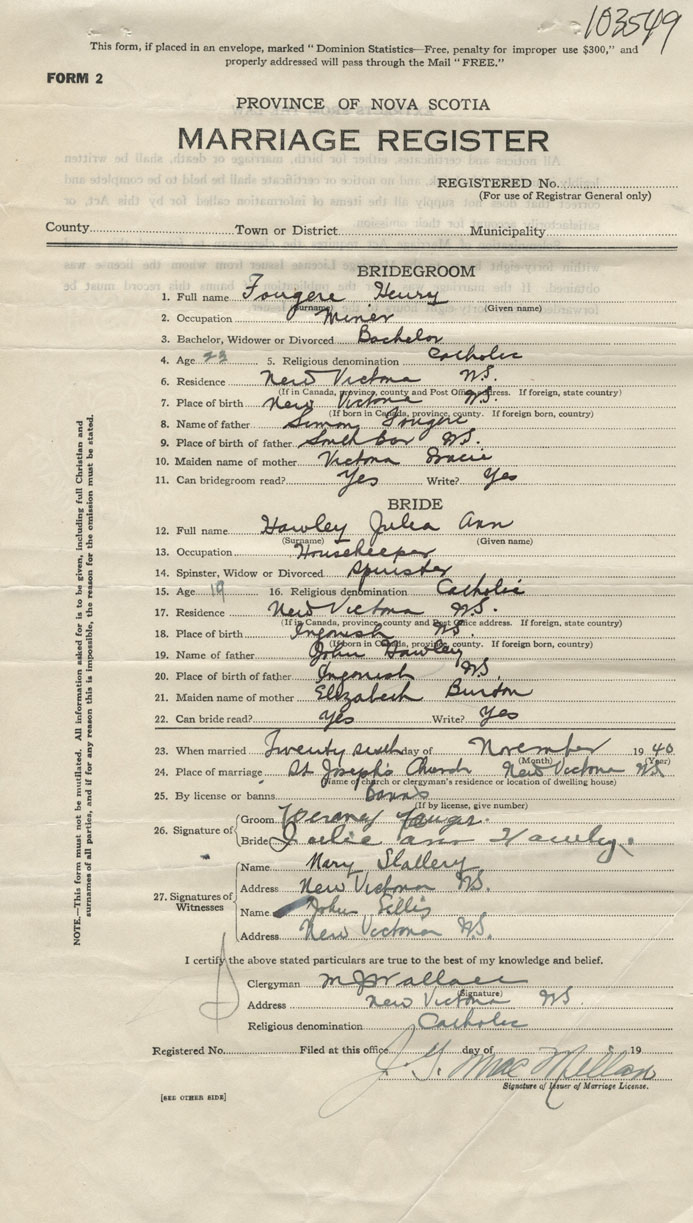 103549
This form, if placed in an envelope, marked "Dominion Statistics—Free, penalty for improper use $300," and
properly addressed will pass through the Mail "FREE."
FORM 2
PROVINCE OF NOVA SCOTIA
MARRIAGE REGISTER
REGISTERED No.
(For use of Registrar General only)
County Town or District Municipality
BRIDEGROOM
1. Full name Fougere Henry
(Surname) (Given name)
2. Occupation Miner
3. Bachelor, Widower or Divorced Bachelor
4. Age 23 5. Religious denomination Catholic
6. Residence New Victoria N.S.
(If in Canada, province, county and Post Office address. If foreign, state country)
7. Place of birth New Victoria N.S.
(If born in Canada, province, county. If foreign born, country)
8. Name of father Simon Fougere
9. Place of birth of father South Bar N.S.
10. Maiden name of mother Victoria
11. Can bridegroom read? Yes Write? Yes
BRIDE
12. Full name Hawley Julia Ann
(Surname) (Given name)
13. Occupation Housekeeper
14. Spinster, Widow or Divorced Spinster
15. Age 19 16. Religious denomination Catholic
17. Residence New Victoria N.S.
(If in Canada, province, county and Post Office address. If foreign, state country)
18. Place of birth Ingonish N.S.
(If born in Canada, province, county. If foreign born, country)
19. Name of father John Hawley
20. Place of birth of father Ingonish N.S.
21. Maiden name of mother Elizabeth Burton
22. Can bride read? Yes Write? Yes
23. When married Twenty sixth day of November 1940
(Month) (Year)
24. Place of marriage St Joseph's Church New Victoria N.S.
(Name of church or clergyman's residence or location of dwelling house)
25. By license or banns Banns
(If by license, give number)
26. Signature of Groom
Bride Julie ann Hawley.
27. Signatures of Witnesses
Name Mary Slattery
Address New Victoria N.S.
Name John Gillis
Address New Victoria N.S.
I certify the above stated particulars are true to the best of my knowledge and belief.
Clergyman M J Wallace
(Signature)
Address New Victoria N.S.
Religious denomination Catholic
Registered No. Filed at this office day of 19
J. G. MacMillan
Signature of Issuer of Marriage License.
[SEE OTHER SIDE]
NOTE.—This form must not be mutilated. All information asked for is to be given, including full Christian and
surnames of all parties, and if for any reason this is impossible, the reason for the omission must be stated.